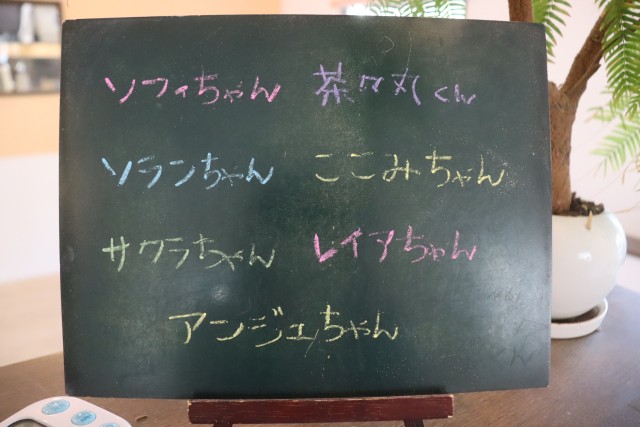 ソフィちゃん 茶々丸くん
ソランちゃん ここみちゃん
サクラちゃん レイアちゃん
アンジュちゃん